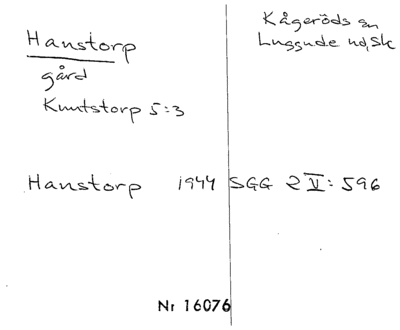 Hanstorp
gård
Knutstorp 5:3
Kågeröds sn
Luggude hd, Sk
Hanstorp 1944 SGG 2 V: 596
Nr 16076